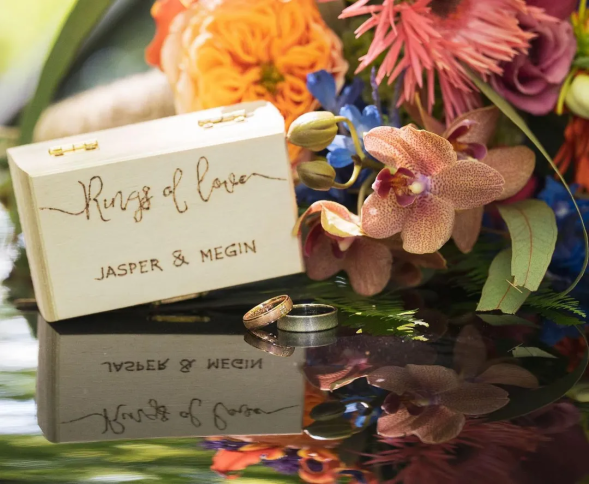 Rings of love
JASPER & MEGIN